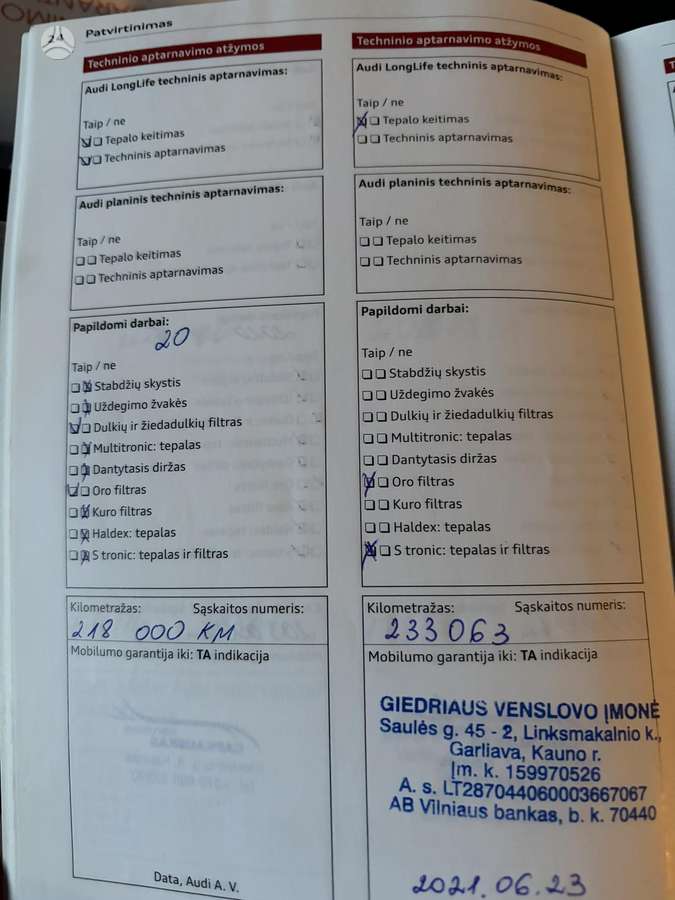 Patvirtinimas
Techninio aptarnavimo atžymos
Audi LongLife techninis aptarnavimas:
Taip / ne
Tepalo keitimas
Techninis aptarnavimas
Audi planinis techninis aptarnavimas:
Taip / ne
Tepalo keitimas
Techninis aptarnavimas
Papildomi darbai:
20
Taip / ne
Stabdžių skystis
Uždegimo žvakės
Dulkių ir žiedadulkių filtras
Multitronic: tepalas
Dantytasis diržas
Oro filtras
Kuro filtras
Haldex: tepalas
S tronic: tepalas ir filtras
Kilometražas: Sąskaitos numeris:
218 000 KM
Mobilumo garantija iki: TA indikacija
Data, Audi A. V.
Techninio aptarnavimo atžymos
Audi LongLife techninis aptarnavimas:
Taip / ne
Tepalo keitimas
Techninis aptarnavimas
Audi planinis techninis aptarnavimas:
Taip / ne
Tepalo keitimas
Techninis aptarnavimas
Papildomi darbai:
Taip / ne
Stabdžių skystis
Uždegimo žvakės
Dulkių ir žiedadulkių filtras
Multitronic: tepalas
Dantytasis diržas
Oro filtras
Kuro filtras
Haldex: tepalas
S tronic: tepalas ir filtras
Kilometražas: Sąskaitos numeris:
233063
Mobilumo garantija iki: TA indikacija
GIEDRIAUS VENSLOVO ĮMONĖ
Saulės g. 45 - 2, Linksmakalnio k.,
Garliava, Kauno r.
Įm. k. 159970526
A. s. LT287044060003667067
AB Vilniaus bankas, b. k. 70440
2021.06.23